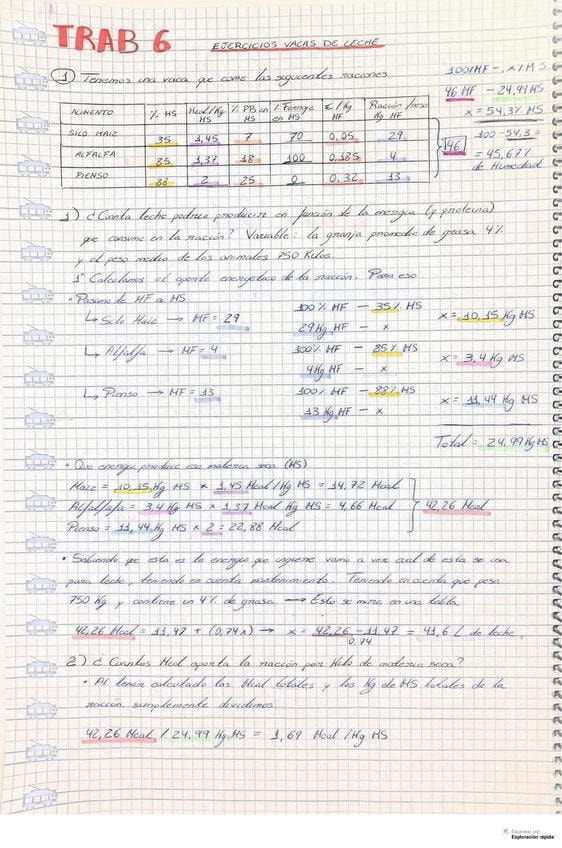 TRAB 6 EJERCICIOS VACAS DE LECHE
① Tenemos una vaca que come las siguientes raciones
100%MF - x%MS
46 MF - 24,99MS
x = 54,3% MS
100-54,3 =
= 45,67%
de Humedad
ALIMENTO % MS Mcal/Kg MS % PB en MS % Forraje en MS €/Kg MF Ración/vaca Kg MF
SILO MAIZ 35 1,45 7 70 0,05 29
ALFALFA 85 1,37 18 100 0,185 4
PIENSO 88 2 25 0 0,32 13
46
1) ¿Cuanta leche podria producirse en función de la energia (y proteina)
que consume en la ración? Variable: la granja promedio de grasa 4%
y el peso medio de los animales 750 Kilos.
1º Calculamos el aporte energetico de la ración. Para eso
• Pasamos de MF a MS
↳ Silo Maiz → MF = 29 100% MF - 35% MS x = 10,15 Kg MS
29Kg MF - x
↳ Alfalfa → MF = 4 100% MF - 85% MS x = 3,4 Kg MS
4Kg MF - x
↳ Pienso → MF = 13 100% MF - 88% MS x = 11,44 Kg MS
13 Kg MF - x
Total = 24,99 Kg MS
• Que energia produce esa materia seca (MS)
Maiz = 10,15 Kg MS × 1,45 Mcal/Kg MS = 14,72 Mcal
Alfalfafa = 3,4 Kg MS × 1,37 Mcal Kg MS = 4,66 Mcal
Pienso = 11,44 Kg MS × 2 = 22,88 Mcal
42,26 Mcal
• Sabiendo que esta es la energia que ingiere vamo a ver cual de esta se usa
para leche, teniendo en cuenta mantenimiento. Teniendo en cuenta que pesa
750 Kg y contiene un 4% de grasa. → Esto se mira en una tabla
42,26 Mcal = 11,47 + (0,74x) → x = 42,26 - 11,47 / 0,74 = 41,6 L de leche
2) ¿Cuantas Mcal aporta la ración por Kilo de materia seca?
• Al tener calculado las Mcal totales y los Kg de MS totales de la
racion simplemente dividimos
42,26 Mcal / 24,99 Kg MS = 1,69 Mcal/Kg MS
Escanear con
Exploración rápida